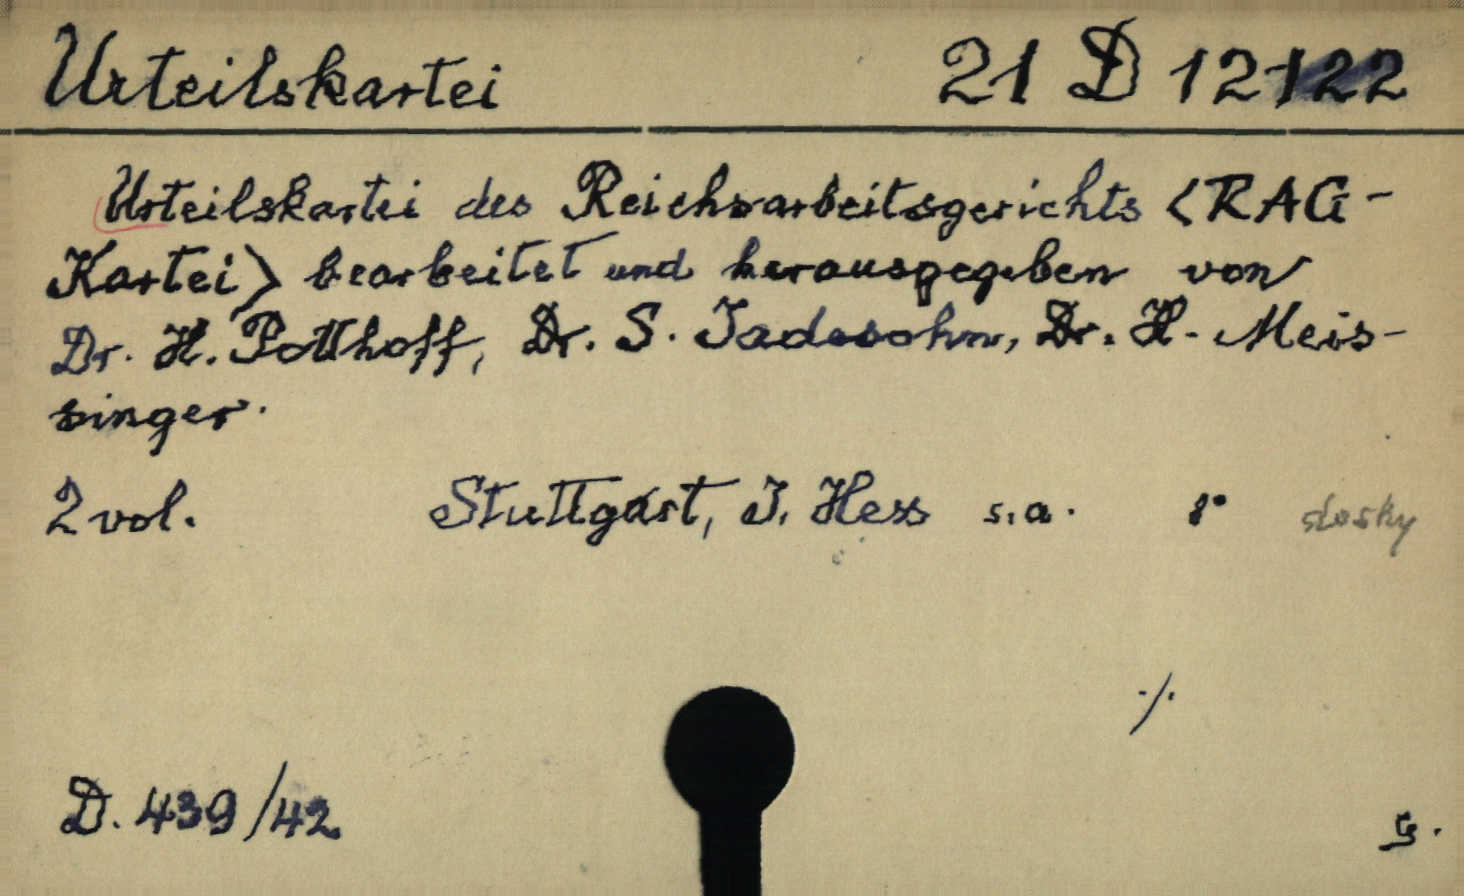 Urteilskartei 21 D 12122
Urteilskartei des Reichsarbeitsgerichts <RAG-
Kartei> bearbeitet und herausgegeben von
Dr. H. Potthoff, Dr. S. Jadesohn, Dr. H. Meis-
singer.
2 vol. Stuttgart, J. Hess s.a. 8° desky
./.
D. 439/42